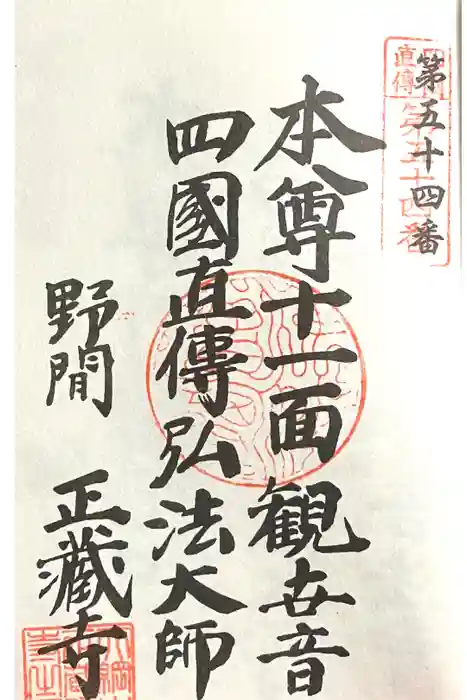 第五十四番
四国
直傳
第五十四番
本尊十一面観世音
四國直傳弘法大師
野間 正蔵寺